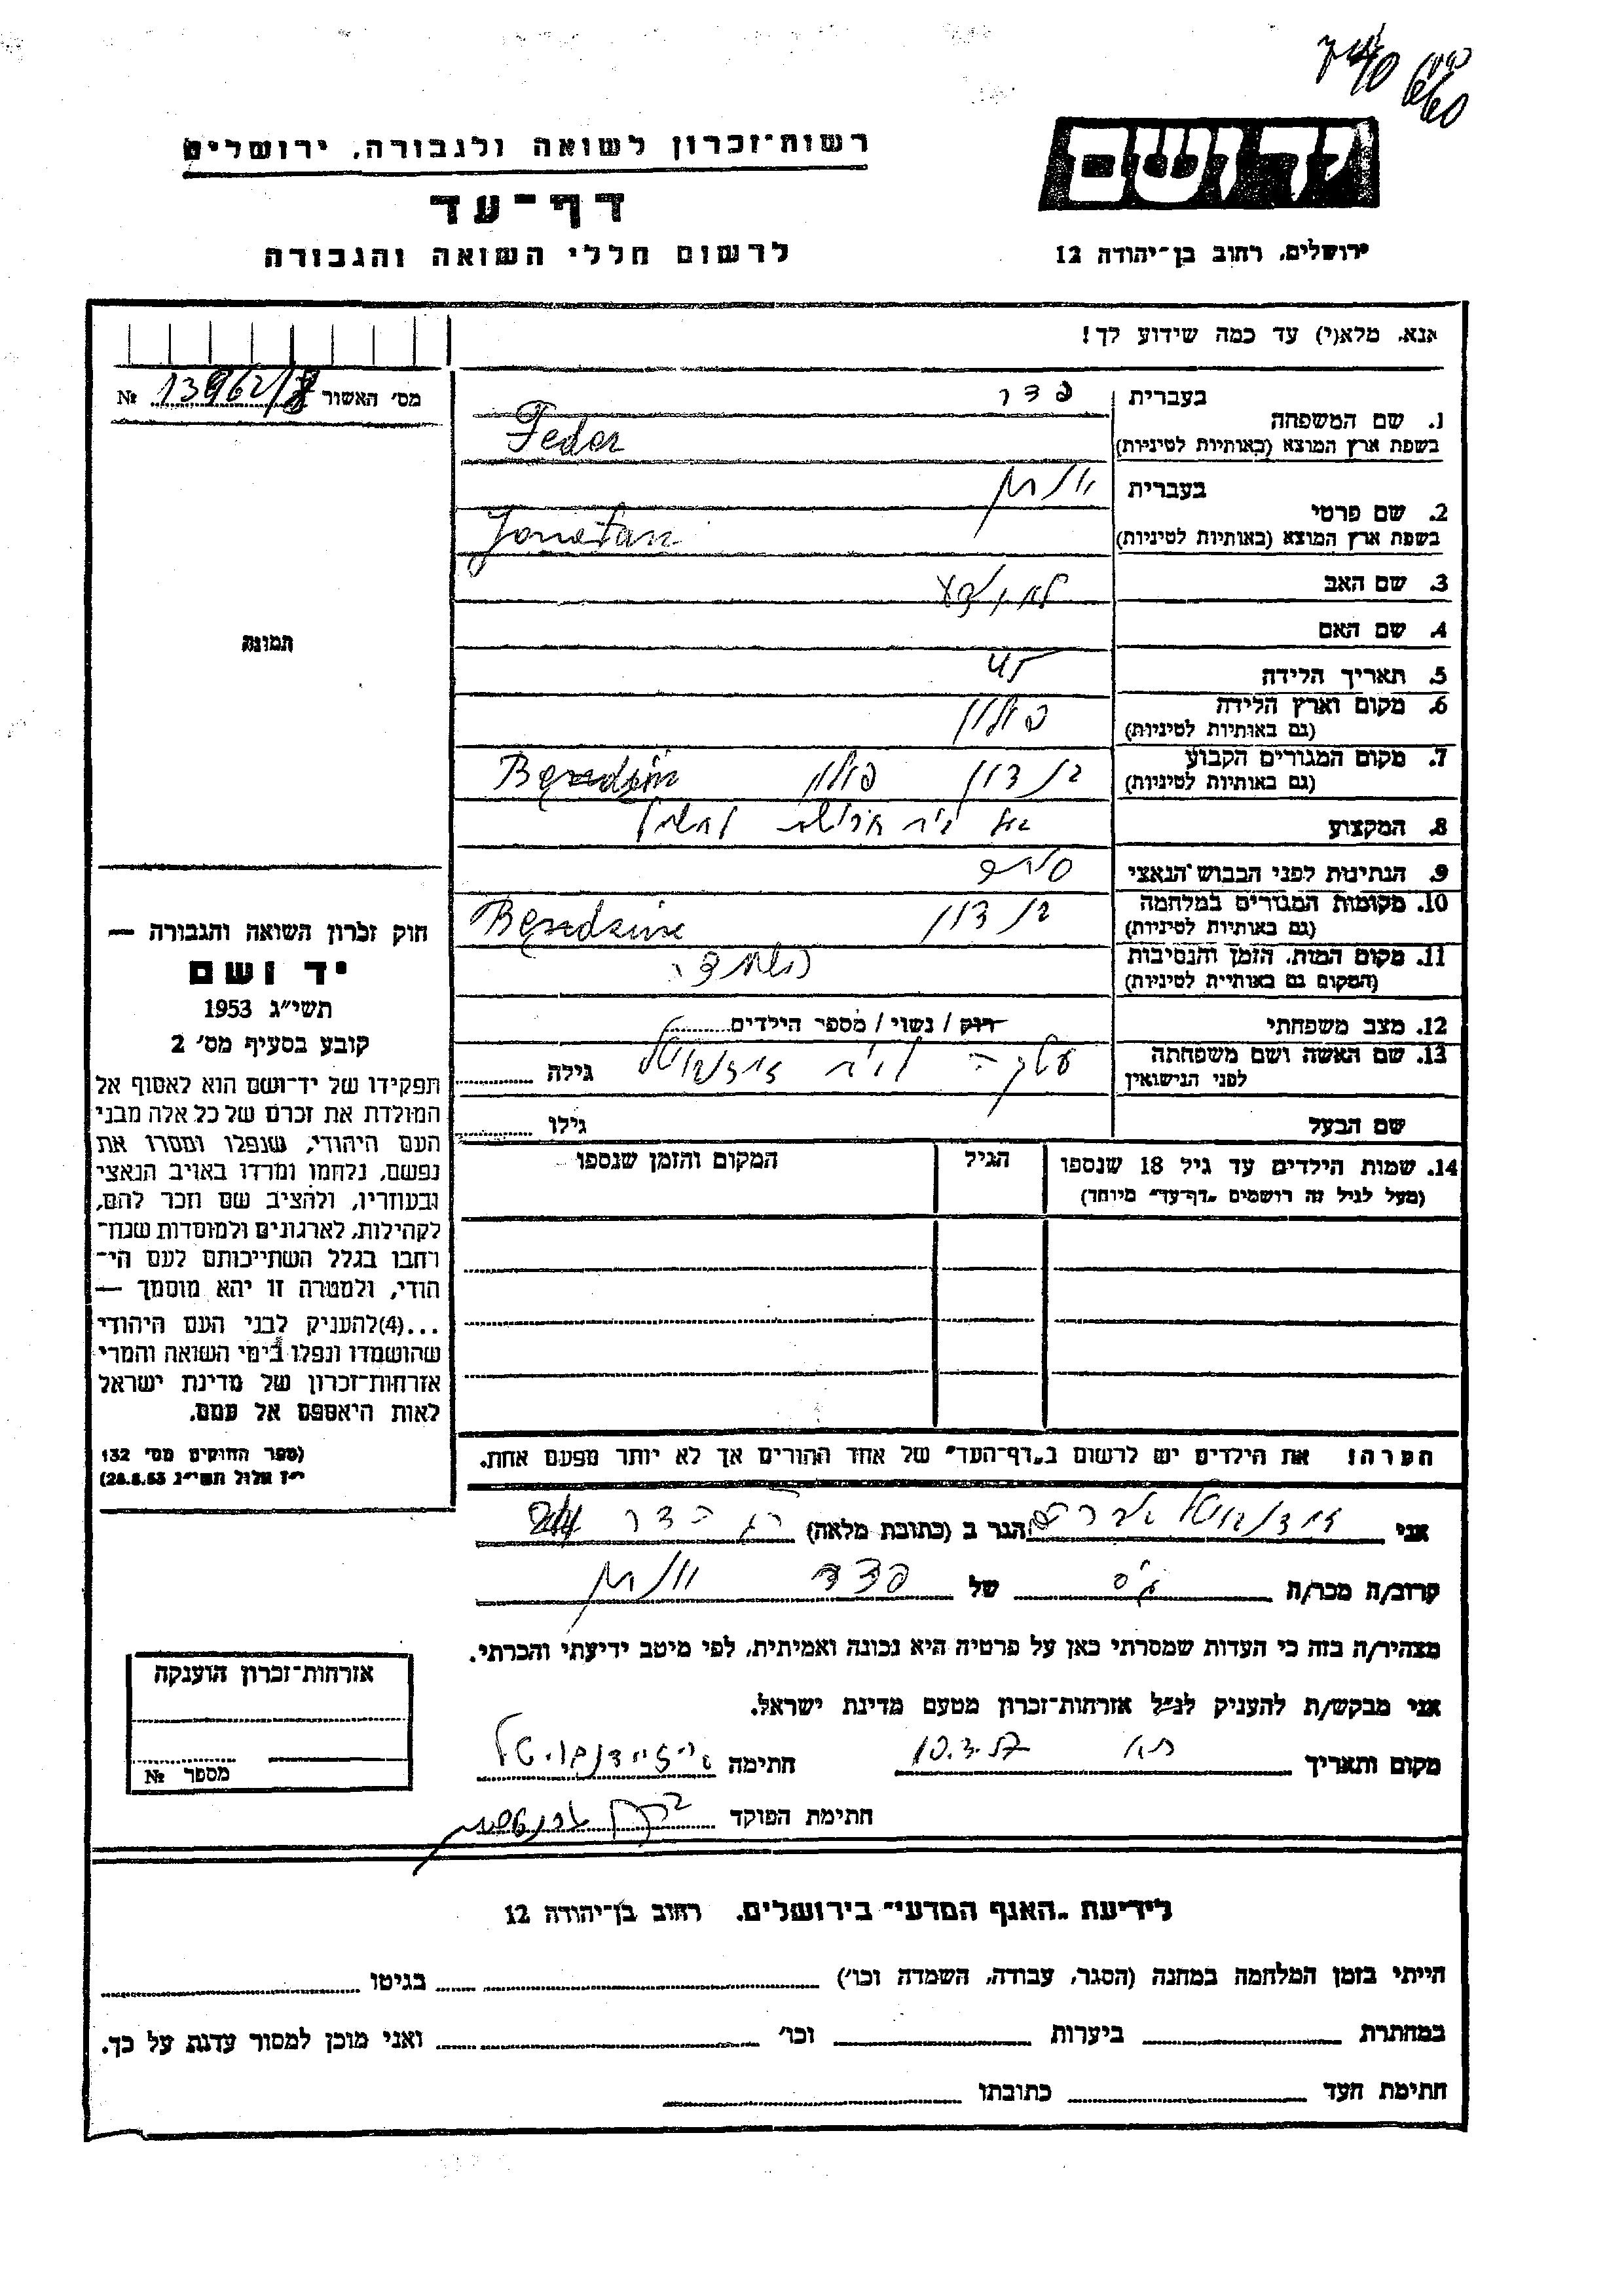 רשות־זכרון לשואה ולגבורה, ירושלים
דף־עד
לרשום חללי השואה והגבורה
יד ושם
ירושלים, רחוב בן־יהודה 12
אנא, מלא(י) עד כמה שידוע לך!
מס׳ האשור № 13962/
1. שם המשפחה בעברית פדר
בשפת ארץ המוצא (באותיות לטיניות) Feder
2. שם פרטי בעברית יונתן
בשפת ארץ המוצא (באותיות לטיניות) Jonatan
3. שם האב לא ידוע
4. שם האם
5. תאריך הלידה 45
6. מקום וארץ הלידה פולין
(גם באותיות לטיניות)
7. מקום המגורים הקבוע בנדין פולין Bendzin
(גם באותיות לטיניות)
8. המקצוע בעל בית חרושת
9. הנתינות לפני הכבוש הנאצי
10. מקומות המגורים במלחמה בנדין
(גם באותיות לטיניות)
11. מקום המות, הזמן והנסיבות השמדה
(המקום גם באותיות לטיניות)
12. מצב משפחתי רווק / נשוי / מספר הילדים
13. שם האשה ושם משפחתה לבית גילה
לפני הנישואין
שם הבעל גילו
14. שמות הילדים עד גיל 18 שנספו הגיל המקום והזמן שנספו
(מעל לגיל זה רושמים „דף־עד" מיוחד)
הערה: את הילדים יש לרשום ב„דף־העד" של אחד ההורים אך לא יותר מפעם אחת.
תמונה
חוק זכרון השואה והגבורה —
יד ושם
תשי״ג 1953
קובע בסעיף מס׳ 2
תפקידו של יד־ושם הוא לאסוף אל
המולדת את זכרם של כל אלה מבני
העם היהודי, שנפלו ומסרו את
נפשם, נלחמו ומרדו באויב הנאצי
ובעוזריו, ולהציב שם וזכר להם,
לקהילות, לארגונים ולמוסדות שנח־
רחבו בגלל השתייכותם לעם הי־
הודי, ולמטרה זו יהא מוסמך —
...(4)להעניק לבני העם היהודי
שהושמדו ונפלו בימי השואה והמרי
אזרחות־זכרון של מדינת ישראל
לאות היאספם אל עמם.
(ספר החוקים מס׳ 132
י״ז אלול תשי״ג 28.8.53)
אני הגר ב (כתובת מלאה)
קרוב/ה מכר/ה גיס של פדר יונתן
מצהיר/ה בזה כי העדות שמסרתי כאן על פרטיה היא נכונה ואמיתית, לפי מיטב ידיעתי והכרתי.
אני מבקש/ת להעניק לנ״ל אזרחות־זכרון מטעם מדינת ישראל.
מקום ותאריך ת״א 10.3.57 חתימה
חתימת הפוקד
אזרחות־זכרון הוענקה
מספר №
לידיעת „האגף המדעי" בירושלים, רחוב בן־יהודה 12
הייתי בזמן המלחמה במחנה (הסגר, עבודה, השמדה וכו׳) בגיטו
במחתרת ביערות וכו׳ ואני מוכן למסור עדות על כך.
חתימת העד כתובתו